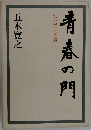 青春の門
五木寛之